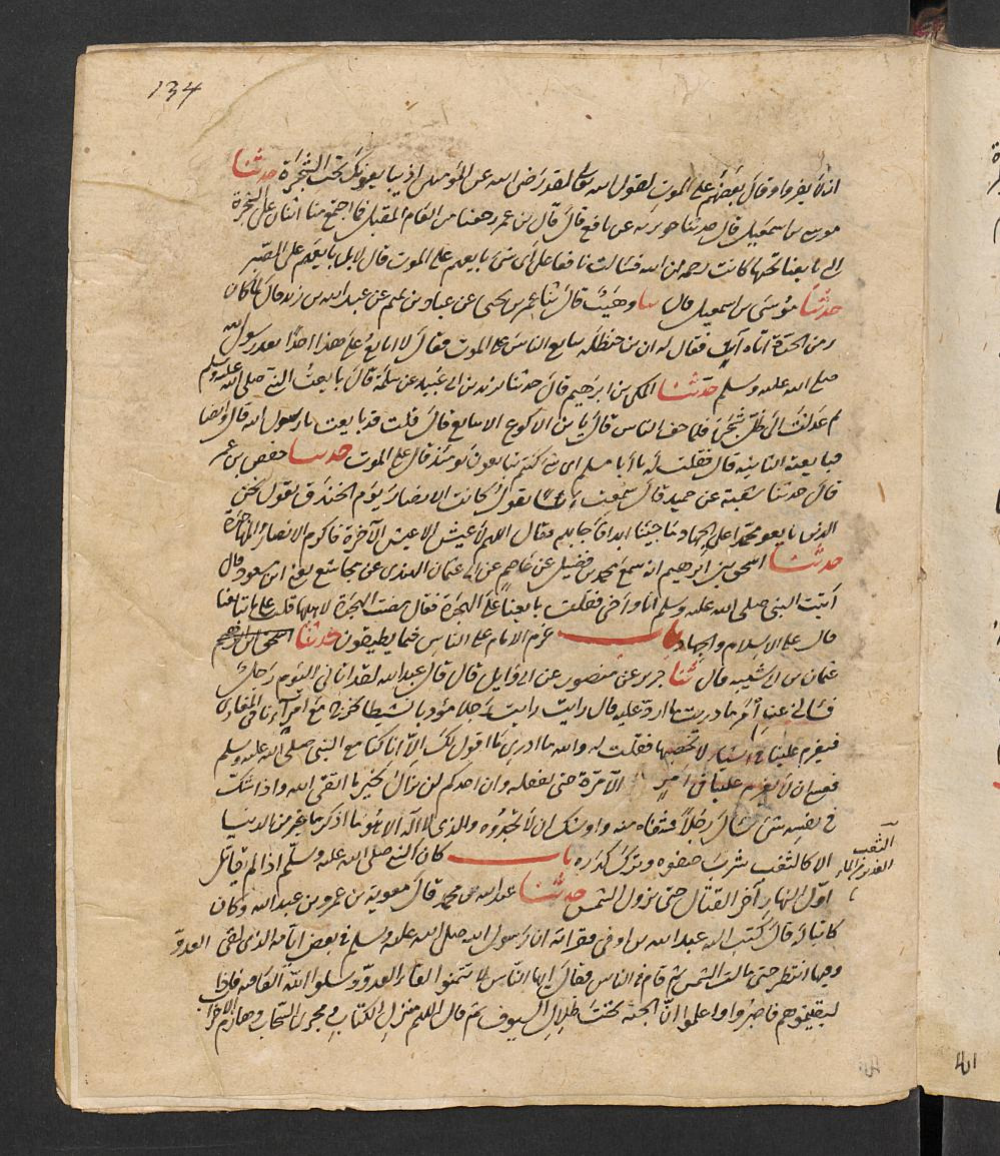 134
ان لا يفروا وقال بعضهم على الموت لقول الله تعالى لقد رضى الله عن المؤمنين اذ يبايعونك تحت الشجرة حدثنا
موسى بن اسمعيل قال حدثنا جويرية عن نافع قال قال ابن عمر رجعنا من العام المقبل فما اجتمع منا اثنان على الشجرة
التى بايعنا تحتها كانت رحمة من الله فسالت نافعا على اى شئ بايعهم على الموت قال لا بل بايعهم على الصبر
حدثنا موسى بن اسمعيل قال ثنا وهيب قال ثنا عمرو بن يحيى عن عباد بن تميم عن عبد الله بن زيد قال لما كان
زمن الحرة اتاه آت فقال له ان ابن حنظلة يبايع الناس على الموت فقال لا ابايع على هذا احدا بعد رسول الله
صلى الله عليه وسلم حدثنا المكى بن ابرهيم قال حدثنا يزيد بن ابى عبيد عن سلمة قال بايعت النبى صلى الله عليه وسلم
ثم عدلت الى ظل شجرة فلما خف الناس قال يا ابن الاكوع الا تبايع قال قلت قد بايعت يا رسول الله قال وايضا
فبايعته الثانية فقلت له يا أبا مسلم اى شئ كنتم تبايعون يومئذ قال على الموت حدثنا حفص بن عمر
قال حدثنا شعبة عن حميد قال سمعت انسا يقول كانت الانصار يوم الخندق تقول نحن
الذين بايعوا محمدا على الجهاد ما حيينا ابدا فأجابهم فقال اللهم لا عيش الا عيش الآخرة فاكرم الانصار والمهاجرة
حدثنا اسحق بن ابرهيم انه سمع محمد بن فضيل عن عاصم عن ابى عثمان النهدى عن مجاشع يعنى ابن مسعود قال
أتيت النبى صلى الله عليه وسلم انا وأخى فقلت بايعنا على الهجرة فقال مضت الهجرة لاهلها قلت على ما تبايعنا
قال على الاسلام والجهاد باب عزم الامام على الناس فيما يطيقون حدثنا
عثمان بن ابى شيبة قال ثنا جرير عن منصور عن ابى وايل قال قال عبد الله لقد اتانى اليوم رجل
فسالنى عن امر ما دريت ما ارد عليه قال رايت رجلا مؤديا نشيطا يخرج مع أمرآئنا فى المغازى
فيعزم علينا فى اشياء لا نحصيها فقلت له والله ما ادرى ما اقول لك الا انا كنا مع النبى صلى الله عليه وسلم
فعسى ان لا يعزم علينا فى امر الا مرة حتى نفعله وان احدكم لن يزال بخير ما اتقى الله واذا شك
فى نفسه شئ سال رجلا فشفاه منه واوشك ان لا تجدوه والذى لا اله الا هو ما اذكر ما غبر من الدنيا
الا كالثغب شرب صفوه وترك كدره باب كان النبى صلى الله عليه وسلم اذا لم يقاتل
الثغب
الغدير من الماء
اول النهار آخر القتال حتى تزول الشمس حدثنا عبد الله بن محمد قال معوية بن عمرو بن عبد الله وكان
كاتبا له قال كتب اليه عبد الله بن ابى اوفى فقرأته ان رسول الله صلى الله عليه وسلم فى بعض ايامه الذى لقى العدو
فيها انتظر حتى مالت الشمس ثم قام فى الناس فقال ايها الناس لا تتمنوا لقاء العدو وسلوا الله العافية فاذا
لقيتموهم فاصبروا واعلموا ان الجنة تحت ظلال السيوف ثم قال اللهم منزل الكتاب ومجرى السحاب وهازم الاحزاب